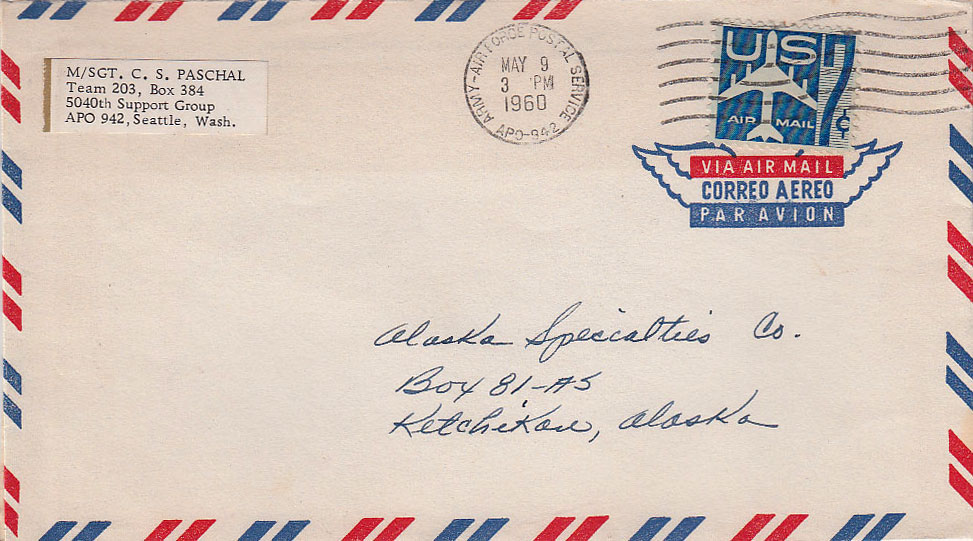 M/SGT. C. S. PASCHAL
Team 203, Box 384
5040th Support Group
APO 942, Seattle, Wash.
ARMY-AIR FORCE POSTAL SERVICE
MAY 9
3 PM
1960
APO-942
US
7¢
AIR MAIL
VIA AIR MAIL
CORREO AEREO
PAR AVION
Alaska Specialties Co.
Box 81-AS
Ketchikan, Alaska